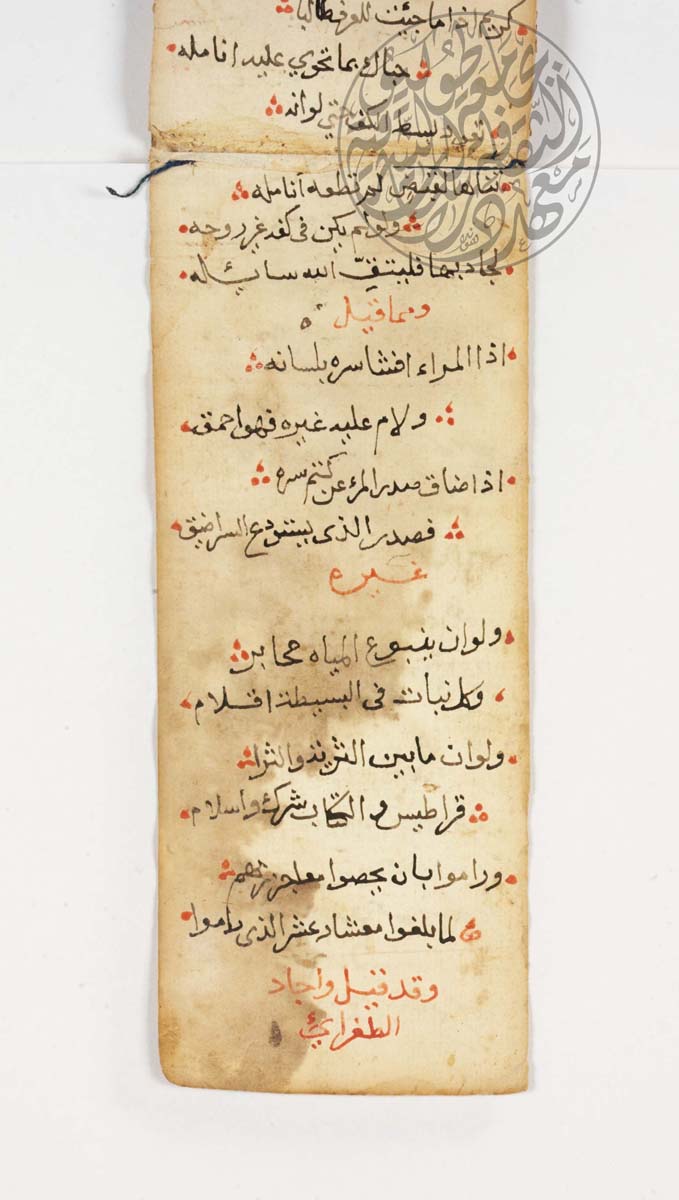 كريم اذا ما جئت للعرف طالبا
حباك بما تحوي عليه انامله
تعود بسط الكف حتي لوانه
ثناها لقبض لم تطعه أنامله
ولولم يكن في كفه غير روحه
لجاد بها فليتق الله سائله
ومما قيل
اذا المراء افشا سره بلسانه
ولام عليه غيره فهوا احمق
اذا ضاق صدر المرء عن كتم سره
فصدر الذى يستودع السر اضيق
غيره
ولوان ينبوع المياه محابر
وكل نبات في البسيطة اقلام
ولوان ما بين الثريا والثرا
قراطيس والكتاب شرك واسلام
وراموا بان يحصوا معاجز
لما بلغوا معشار عشر الذى راموا
وقد قيل واجاد
الطغرائي